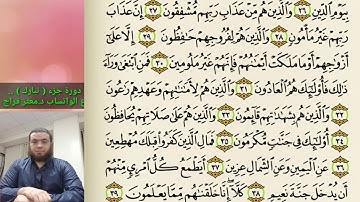 بِيَوْمِ ٱلدِّينِ ٢٦ وَٱلَّذِينَ هُم مِّنْ عَذَابِ رَبِّهِم مُّشْفِقُونَ ٢٧ إِنَّ عَذَابَ
رَبِّهِمْ غَيْرُ مَأْمُونٍ ٢٨ وَٱلَّذِينَ هُمْ لِفُرُوجِهِمْ حَٰفِظُونَ ٢٩ إِلَّا عَلَىٰٓ
أَزْوَٰجِهِمْ أَوْ مَا مَلَكَتْ أَيْمَٰنُهُمْ فَإِنَّهُمْ غَيْرُ مَلُومِينَ ٣٠ فَمَنِ ٱبْتَغَىٰ وَرَآءَ
ذَٰلِكَ فَأُو۟لَٰٓئِكَ هُمُ ٱلْعَادُونَ ٣١ وَٱلَّذِينَ هُمْ لِأَمَٰنَٰتِهِمْ وَعَهْدِهِمْ رَٰعُونَ
٣٢ وَٱلَّذِينَ هُم بِشَهَٰدَٰتِهِمْ قَآئِمُونَ ٣٣ وَٱلَّذِينَ هُمْ عَلَىٰ صَلَاتِهِمْ يُحَافِظُونَ
٣٤ أُو۟لَٰٓئِكَ فِى جَنَّٰتٍ مُّكْرَمُونَ ٣٥ فَمَالِ ٱلَّذِينَ كَفَرُوا۟ قِبَلَكَ مُهْطِعِينَ
٣٦ عَنِ ٱلْيَمِينِ وَعَنِ ٱلشِّمَالِ عِزِينَ ٣٧ أَيَطْمَعُ كُلُّ ٱمْرِئٍ مِّنْهُمْ
أَن يُدْخَلَ جَنَّةَ نَعِيمٍ ٣٨ كَلَّآ إِنَّا خَلَقْنَٰهُم مِّمَّا يَعْلَمُونَ ٣٩
دورة جزء ( تبارك ) ..
ع الواتساب د.معتز فراج